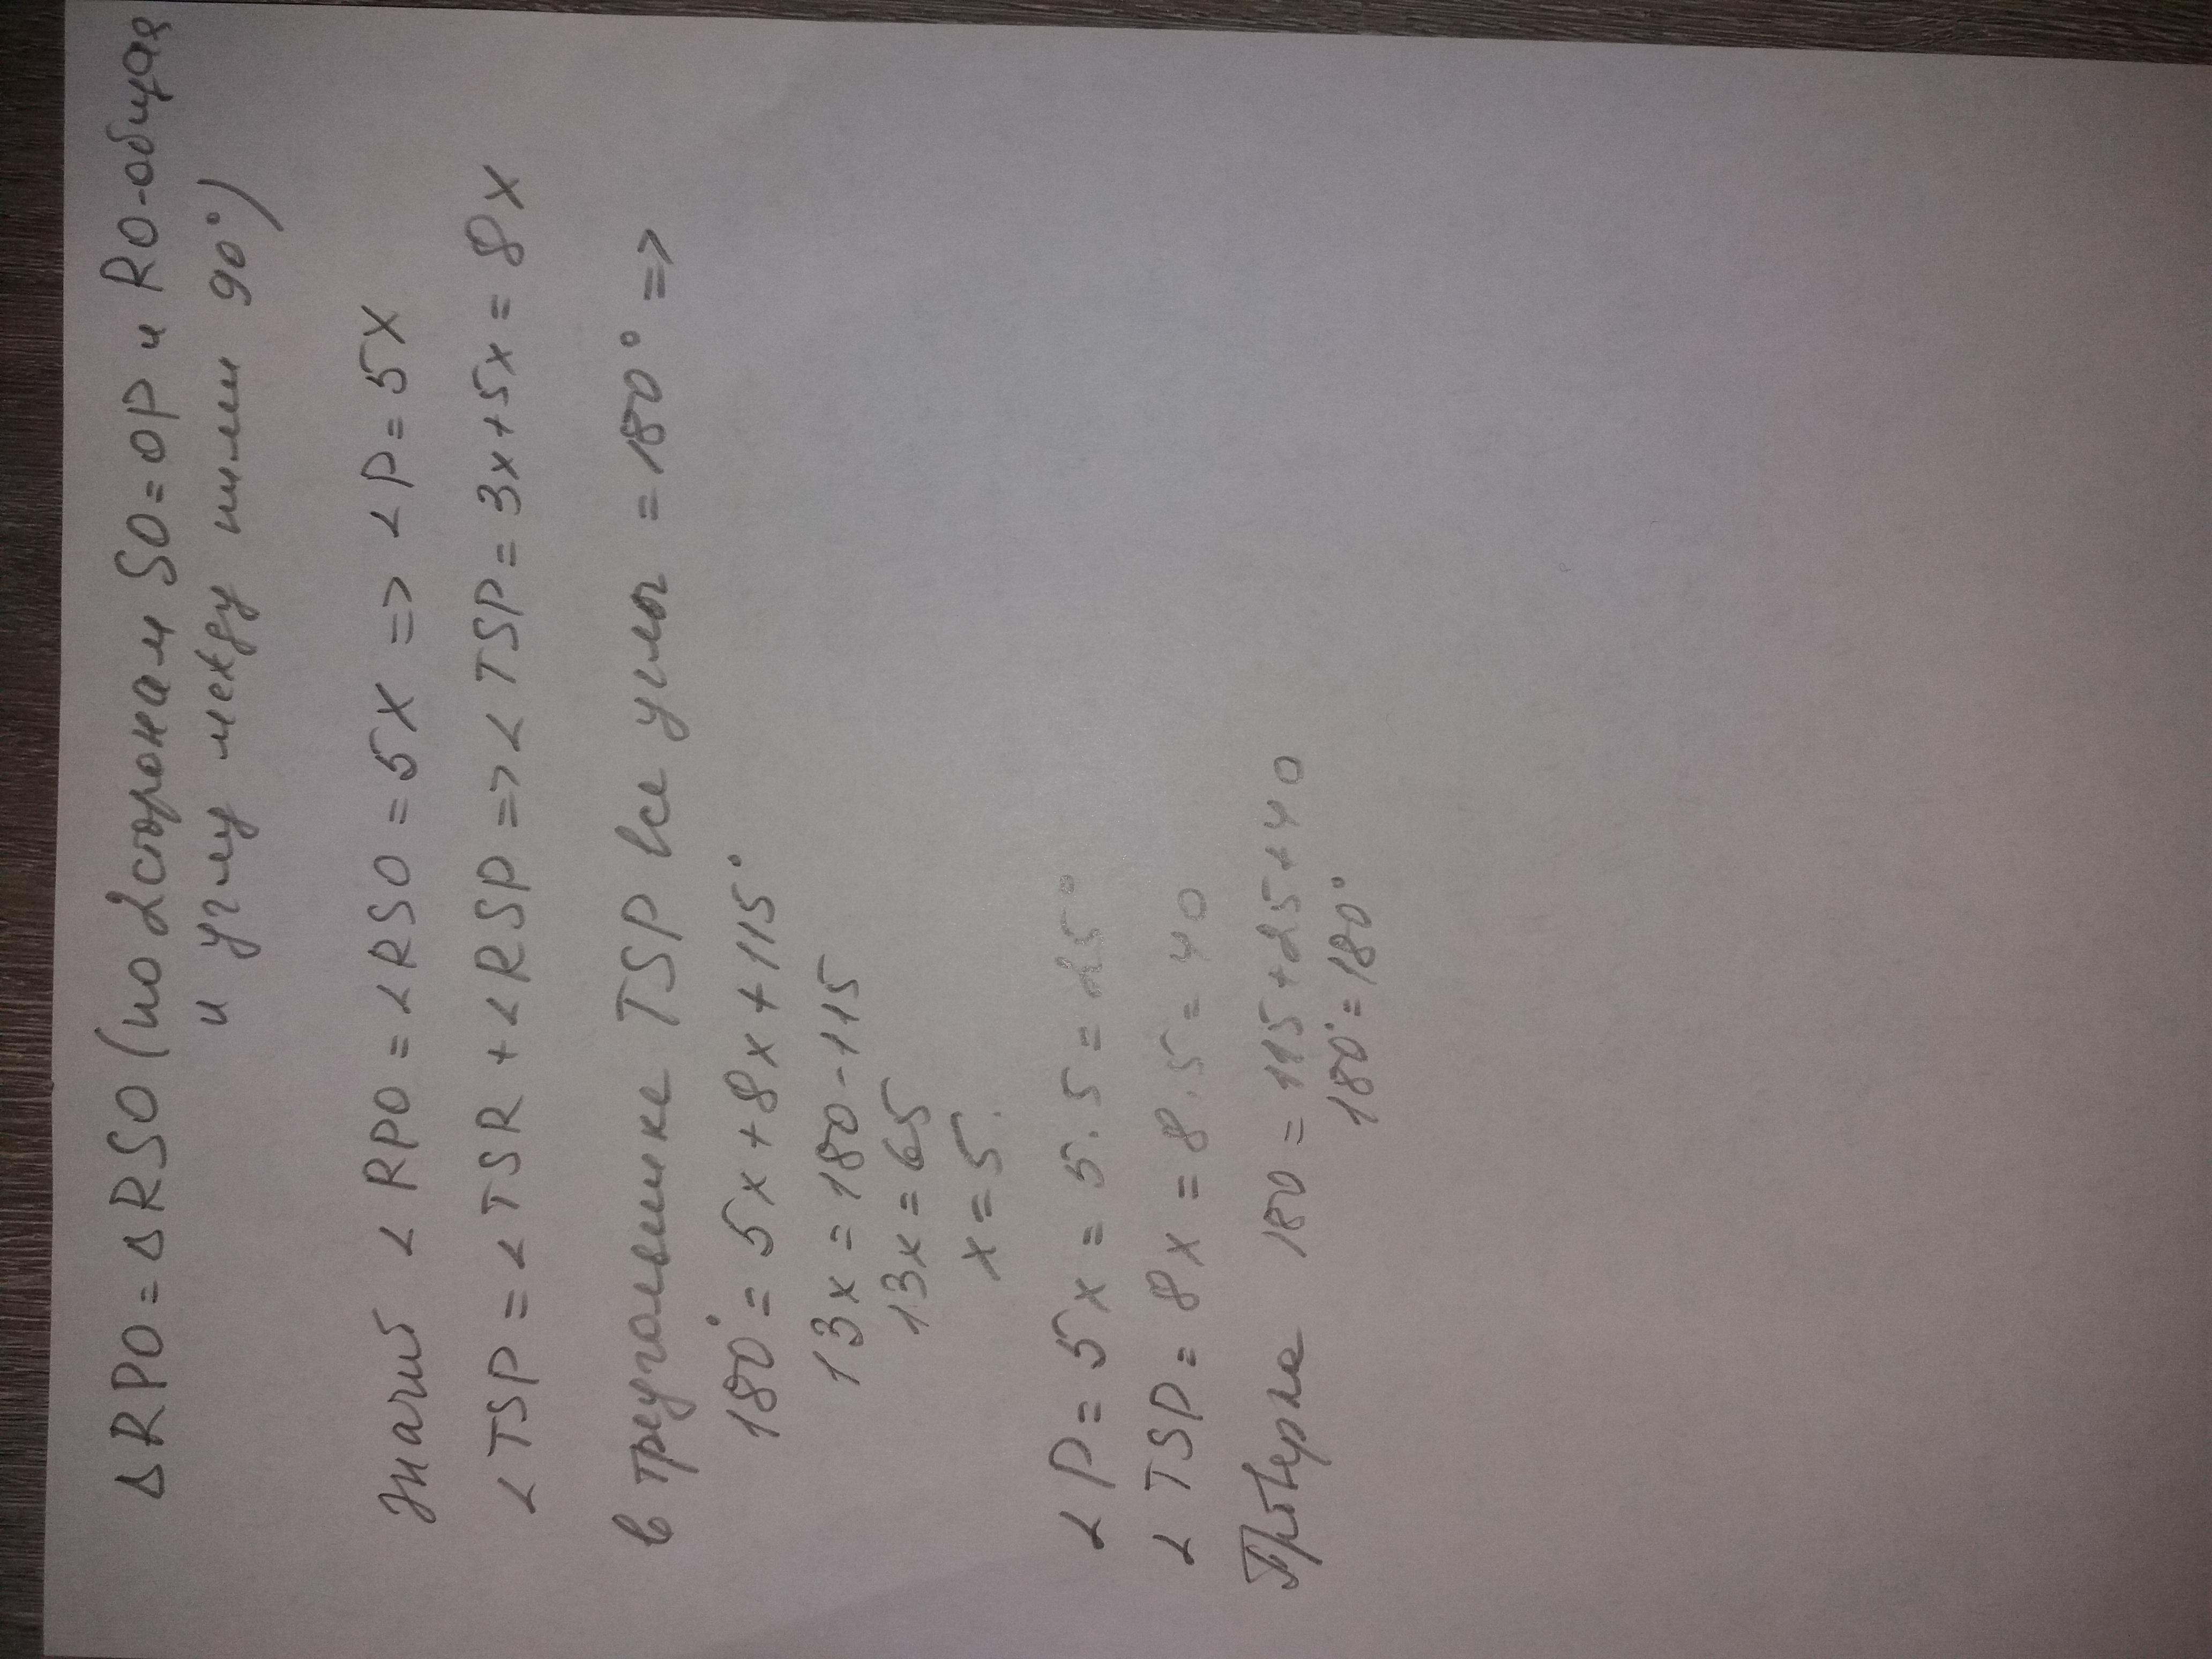 Δ RPO = Δ RSO (по 2 сторонам SO = OP и RO - общая
и углу между ними 90°)
Значит ∠ RPO = ∠ RSO = 5x => ∠ P = 5x
∠ TSP = ∠ TSR + ∠ RSP => ∠ TSP = 3x + 5x = 8x
в треугольнике TSP все углы = 180° =>
180° = 5x + 8x + 115°
13x = 180 - 115
13x = 65
x = 5.
∠ P = 5x = 5 · 5 = 25°
∠ TSP = 8x = 8 · 5 = 40
Проверка 180 = 115 + 25 + 40
180° = 180°